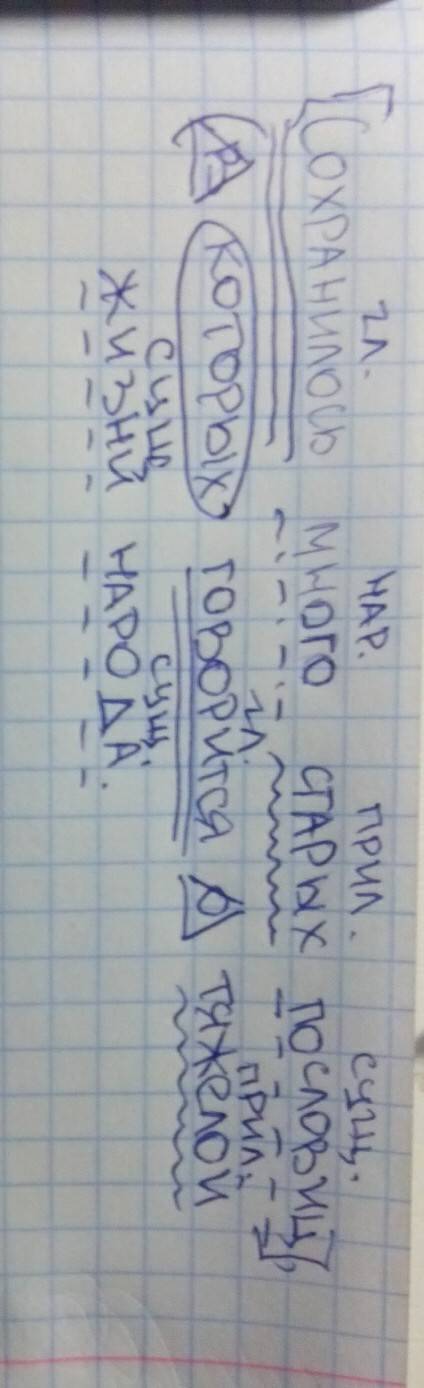 гл. нар. прил. сущ.
[Сохранилось много старых пословиц],
гл. прил.
(в которых говорится о тяжелой
сущ. сущ.
жизни народа.